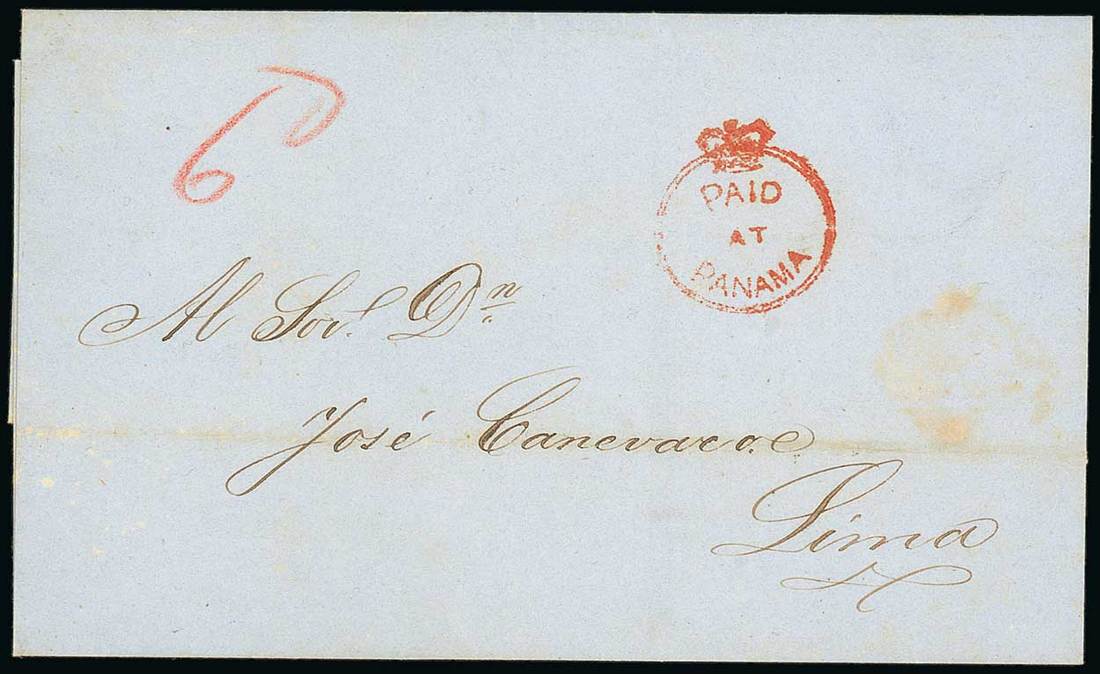 6
PAID
AT
PANAMA
Al Sor. Dn.
José Canevaro.
Lima